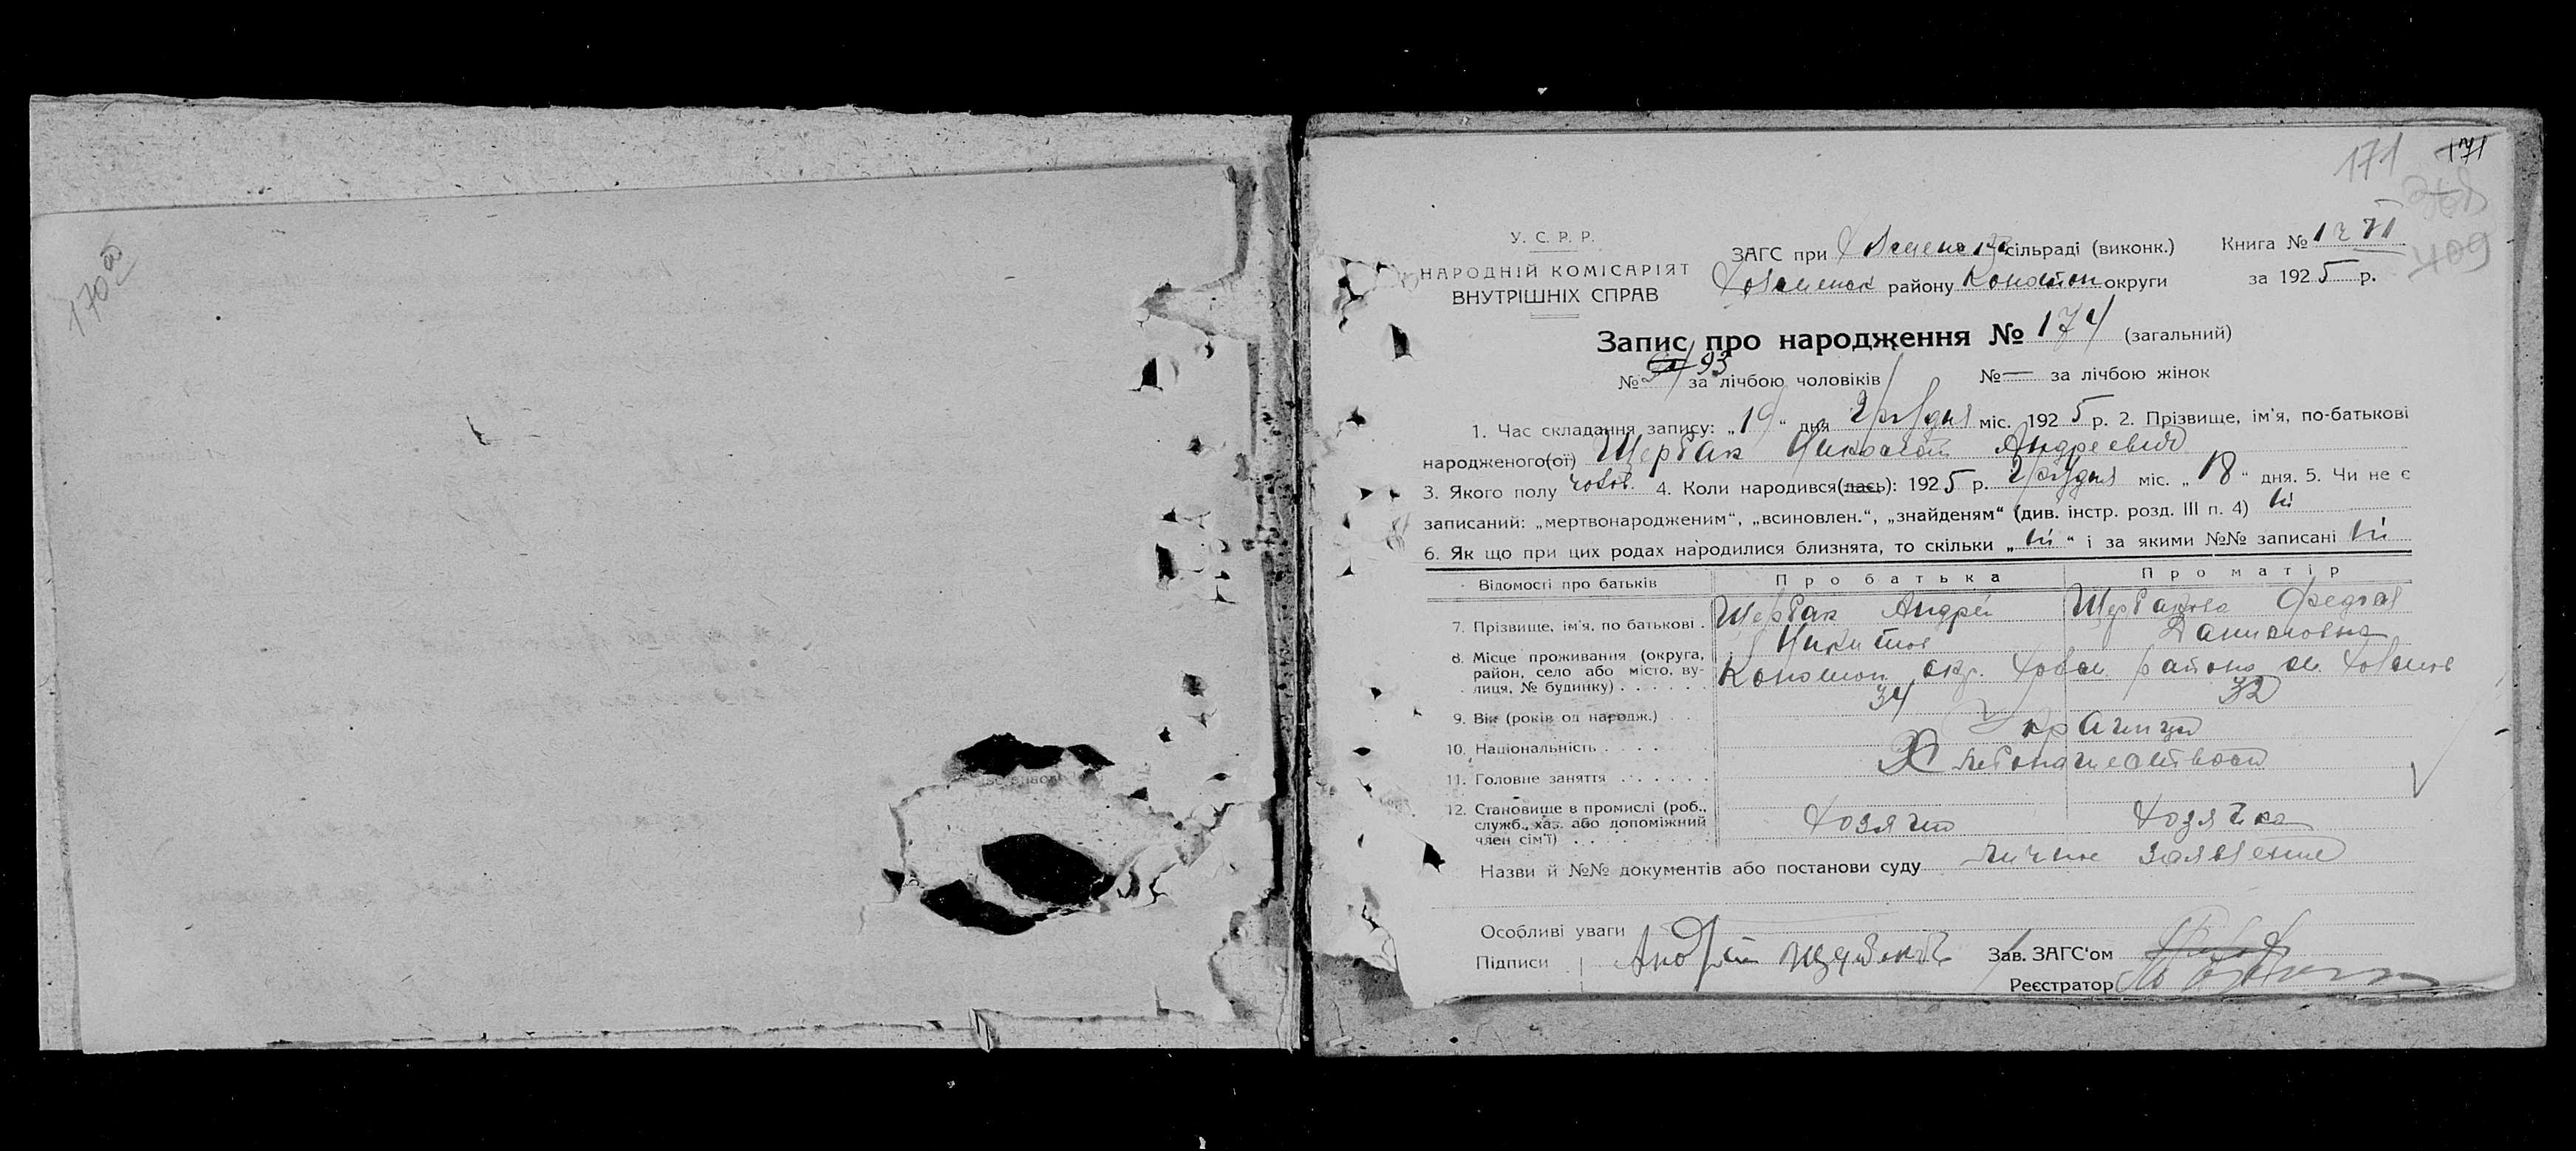 170 об
171 171
409
У. С. Р. Р.
НАРОДНІЙ КОМІСАРІЯТ
ВНУТРІШНІХ СПРАВ
ЗАГС при сільраді (виконк.)
району Конотоп округи
Книга №
за 1925 р.
Запис про народження № 174 (загальний)
№ 93 за лічбою чоловіків № — за лічбою жінок
1. Час складання запису: „19“ дня Грудня міс. 1925 р. 2. Прізвище, ім'я, по-батькові
народженого(ої) Щербак Николай Андреевич
3. Якого полу чолов. 4. Коли народився(лась): 1925 р. Грудня міс. „18“ дня. 5. Чи не є
записаний: „мертвонародженим“, „всиновлен.“, „знайденям“ (див. інстр. розд. III п. 4) ні
6. Як що при цих родах народилися близнята, то скільки „ні“ і за якими №№ записані ні
Відомості про батьків Про батька Про матір
7. Прізвище, ім'я, по батькові . Щербак Андрей Никитов Щербакова Даниловна
8. Місце проживання (округа, район, село або місто, вулиця, № будинку) . . . . . . Конотоп окр. района
9. Вік (років од народж.) . . 34 32
10. Національність . . . . Украинци
11. Головне заняття . . . . . . Хлебопашеством
12. Становище в промислі (роб., служб., хаз. або допоміжний член сім'ї) . . . Хозяин Хозяйка
Назви й №№ документів або постанови суду личне заявление
Особливі уваги
Підписи Андрей Зав. ЗАГС'ом
Реєстратор